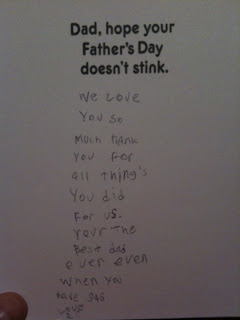 Dad, hope your
Father's Day
doesn't stink.
We Love
You so
much thank
you for
all thing's
You did
For us.
Your the
Best dad
ever even
when you
have gas